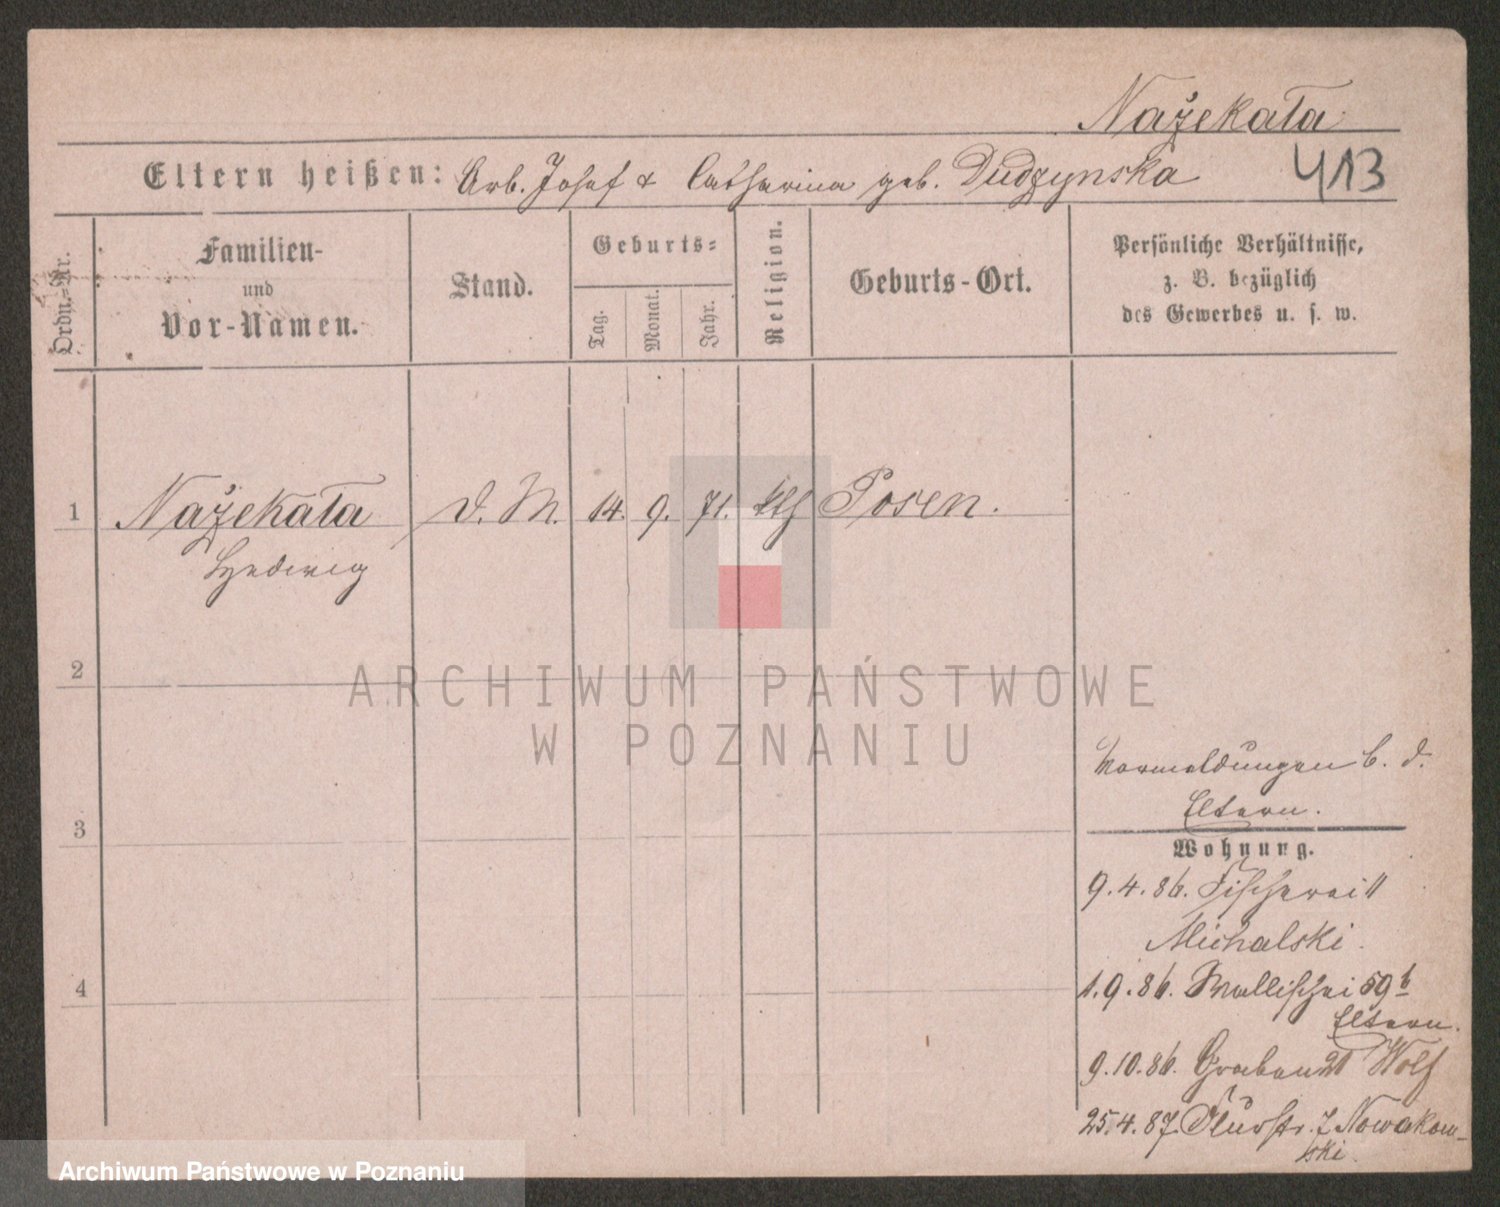 Nażekała
Eltern heißen: Arb. Josef & Catharina geb. Dudzynska 413
Ordn.-Nr.
Familien-
und
Vor-Namen.
Stand.
Geburts-
Tag.
Monat.
Jahr.
Religion.
Geburts-Ort.
Persönliche Verhältnisse,
z. B. bezüglich
des Gewerbes u. s. w.
1 Nażekała d. M. 14. 9. 71. kth Posen.
Hedwig
2
3
4
Vormeldungen b. d.
Eltern.
Wohnung.
9.4.86. Fischerei 11
Michalski.
1.9.86. Wallischei 59b
Eltern.
9.10.86. Graben 20 Wolf
25.4.87. Flurstr. 7 Nowakow-
ski.
ARCHIWUM PAŃSTWOWE
W POZNANIU
Archiwum Państwowe w Poznaniu